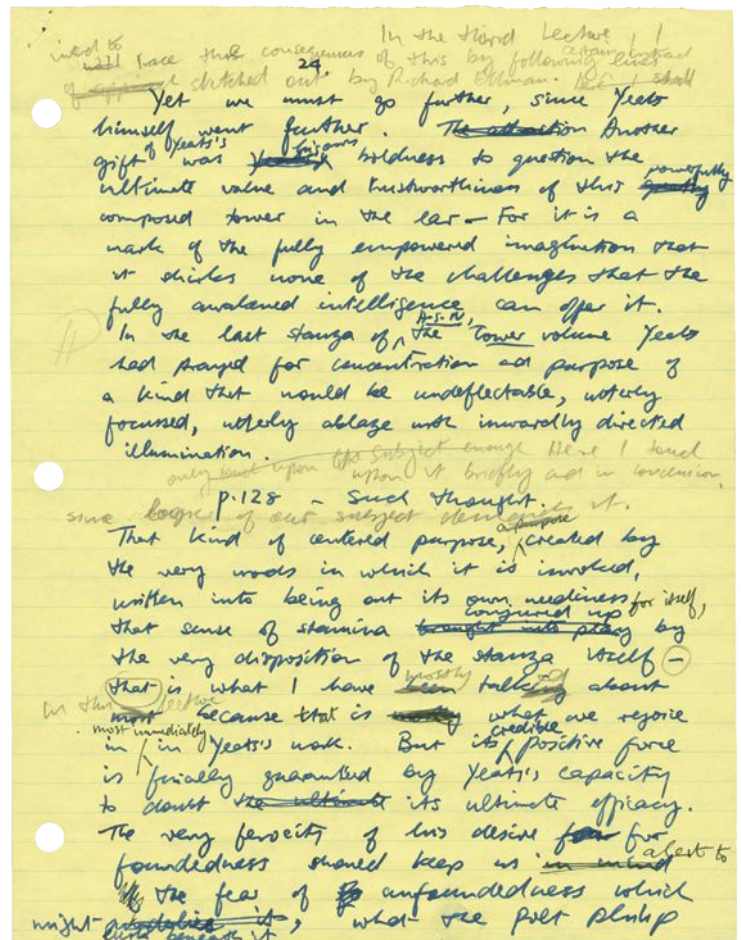 In the third Lecture, I
intend to trace the consequences of this by following certain lines
of sketched out by Richard Ellman. But I shall
24.
Yet we must go further, since Yeats
himself went further. The attraction Another
gift of Yeats's was his own boldness to question the
ultimate value and trustworthiness of this powerfully
composed tower in the ear — For it is a
mark of the fully empowered imagination that
it shirks none of the challenges that the
fully awakened intelligence can offer it.
In the last stanza of A.S.N, The Tower volume Yeats
had prayed for concentration and purpose of
a kind that would be undeflectable, utterly
focussed, utterly ablaze with inwardly directed
illumination.
subject enough Here I touch
only upon upon it briefly and in conclusion,
p.128 – Such thought.
since logic of our subject demands it.
That kind of centered purpose, a purpose created by
the very words in which it is invoked,
written into being out its own neediness for itself,
that sense of stamina brought into play conjured up by
the very disposition of the stanza itself –
that is what I have been mostly talking about
in this lecture
most because that is what we rejoice
in most immediately in Yeats's work. But its credible positive force
is finally guaranteed by Yeats's capacity
to doubt the ultimate its ultimate efficacy.
The very ferocity of his desire for for
foundedness should keep us in mind alert to
the fear of unfoundedness which
might lurk beneath it, what the poet Philip